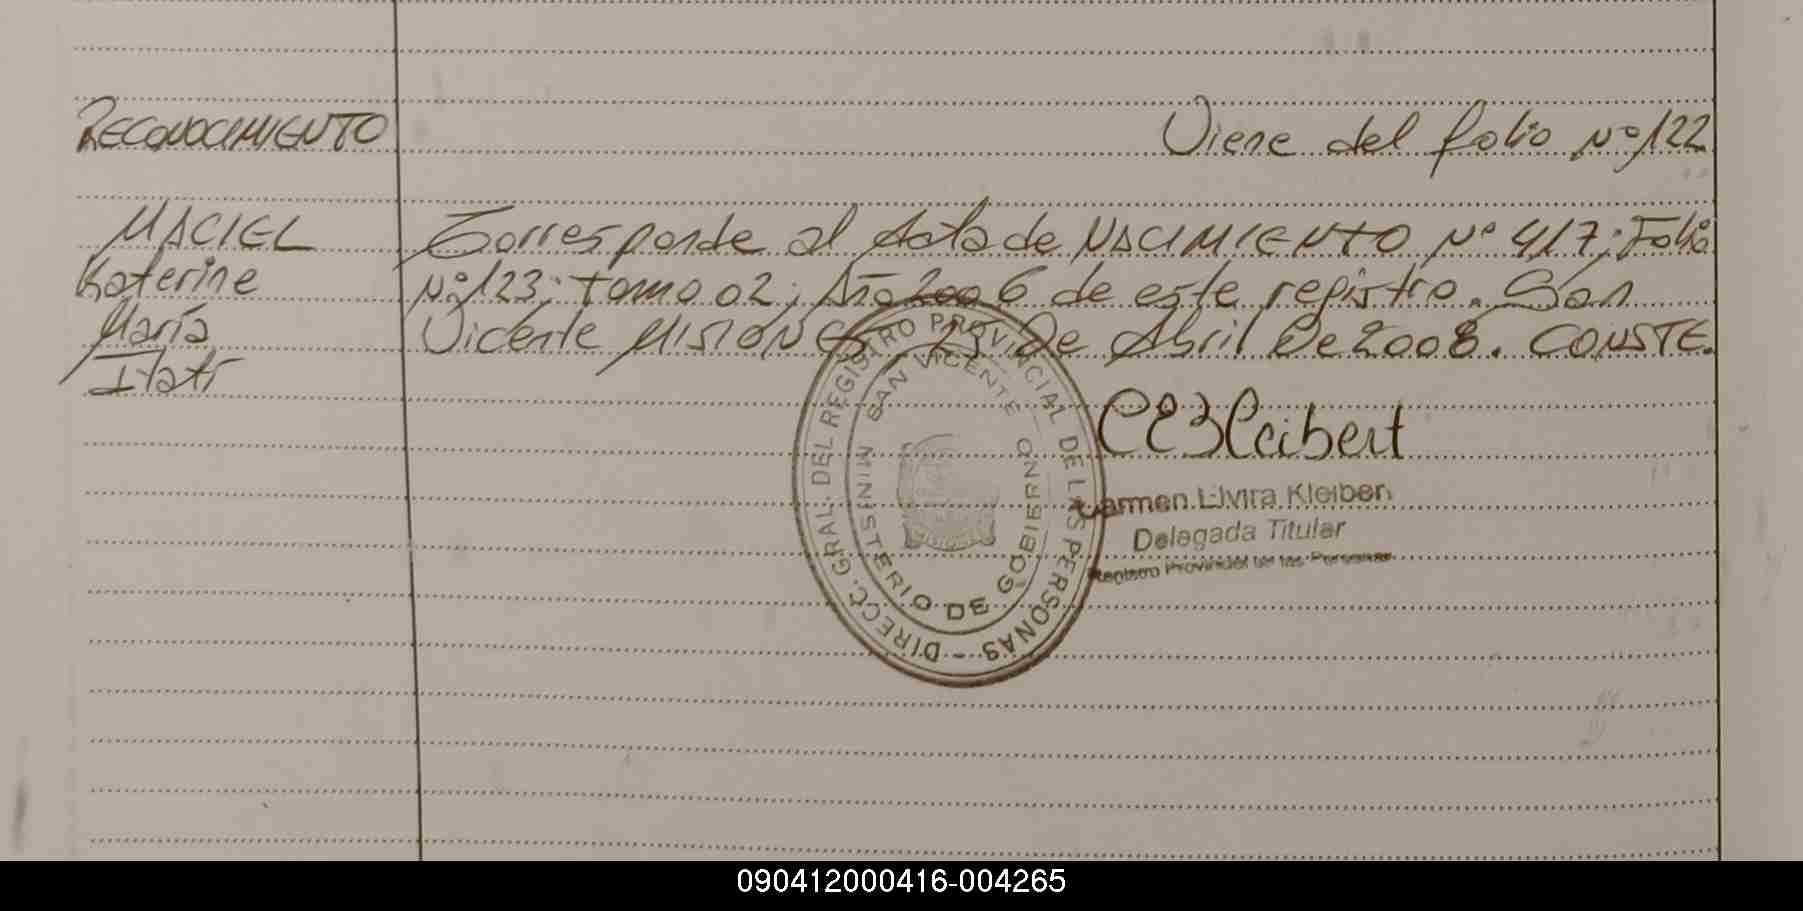 RECONOCIMIENTO
Viene del folio Nº 122
MACIEL
Katerine
María
Itatí
Corresponde al Acta de NACIMIENTO Nº 417; Folio
Nº 123; tomo 02; Año 2006 de este registro. San
Vicente MISIONES 25 De Abril De 2008. CONSTE.
DIRECC. GRAL. DEL REGISTRO PROVINCIAL DE LAS PERSONAS -
MINISTERIO DE GOBIERNO
SAN VICENTE
Carmen Elvira Kleibert
Delegada Titular
Registro Provincial de las Personas
090412000416-004265